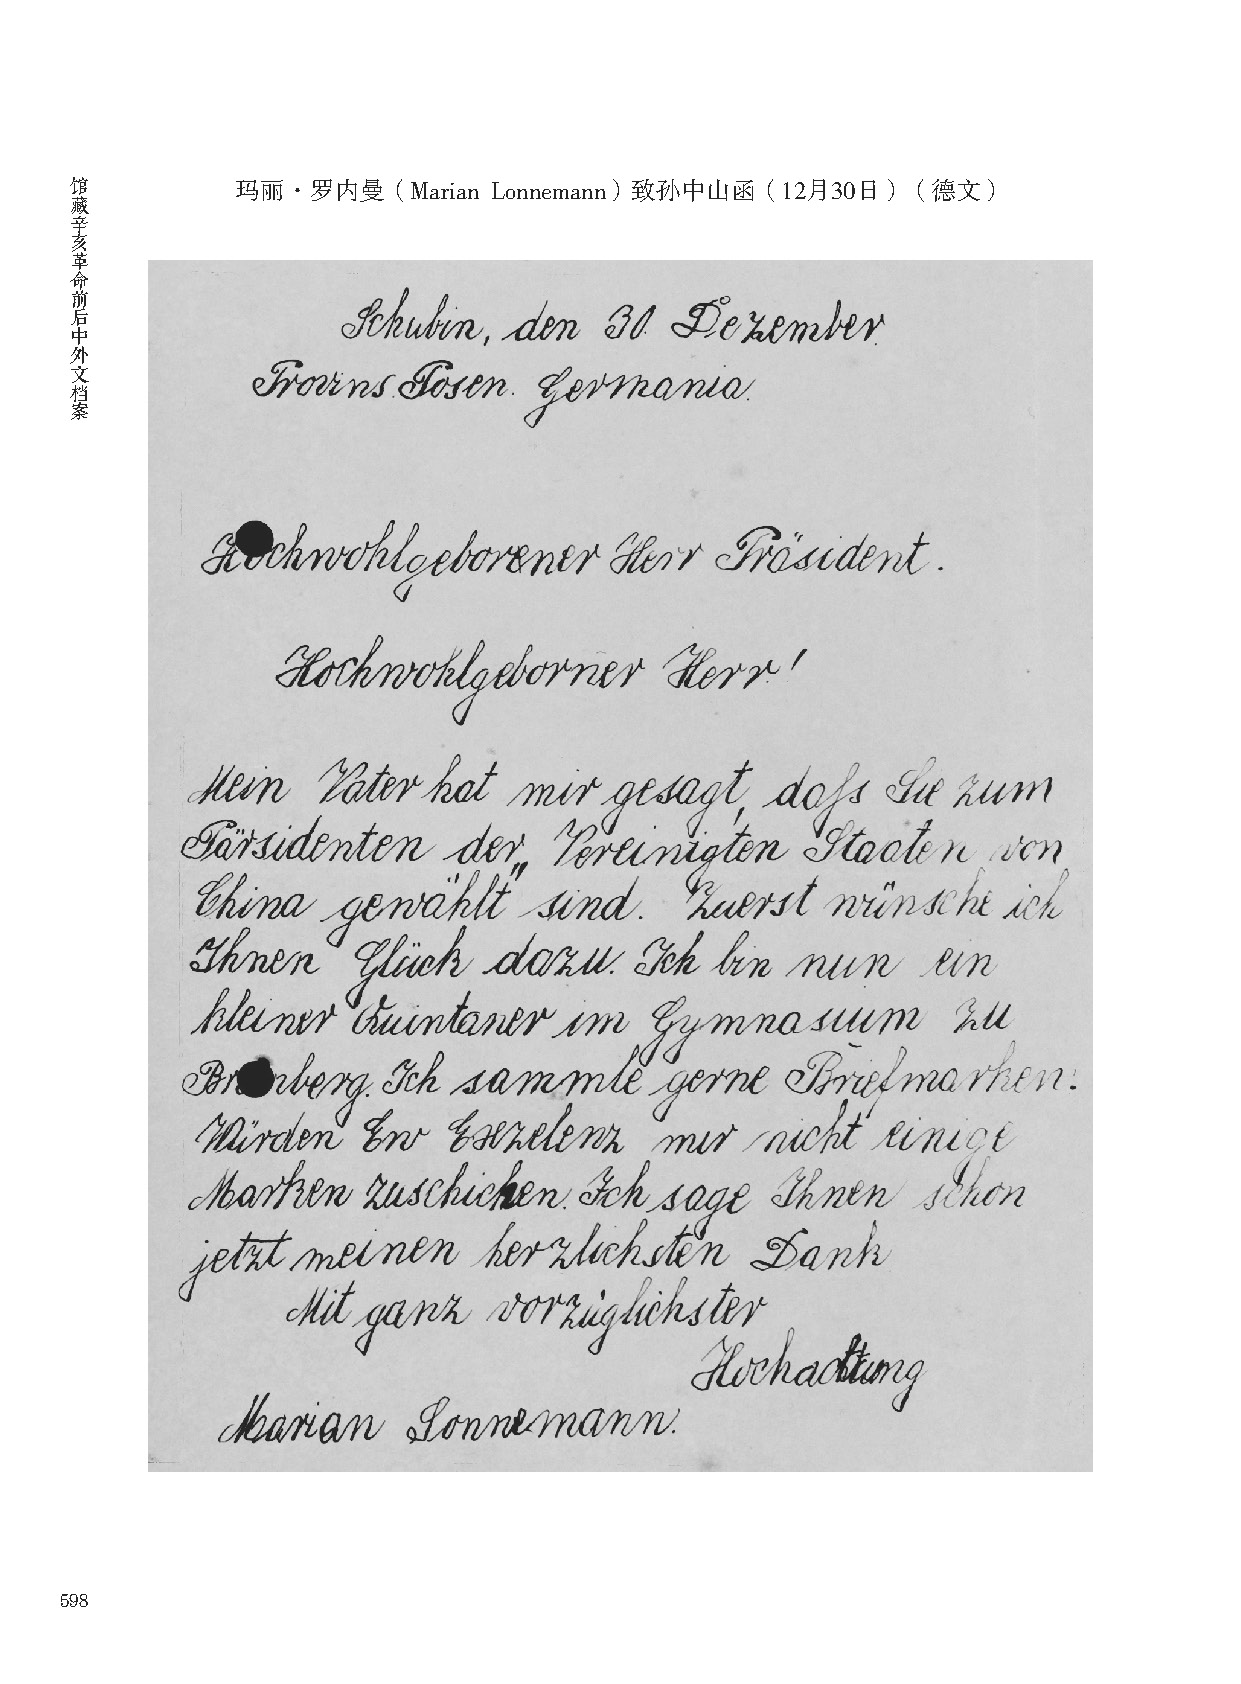 馆藏辛亥革命前后中外文档案
玛丽·罗内曼（Marian Lonnemann）致孙中山函（12月30日）（德文）
Schubin, den 30. Dezember.
Provins. Posen. Germania.
Hochwohlgeborener Herr Präsident.
Hochwohlgeborner Herr!
Mein Vater hat mir gesagt, daſs Sie zum
Pärsidenten der „Vereinigten Staaten von
China gewählt" sind. Zuerst wünsche ich
Ihnen Glück dazu. Ich bin nun ein
kleiner Quintaner im Gymnasium zu
Ich sammle gerne Briefmarken.
Würden Ew Exzelenz mir nicht einige
Marken zuschicken. Ich sage Ihnen schon
jetzt meinen herzlichsten Dank
Mit ganz vorzüglichster
Hochachtung
Marian Lonnemann.
598